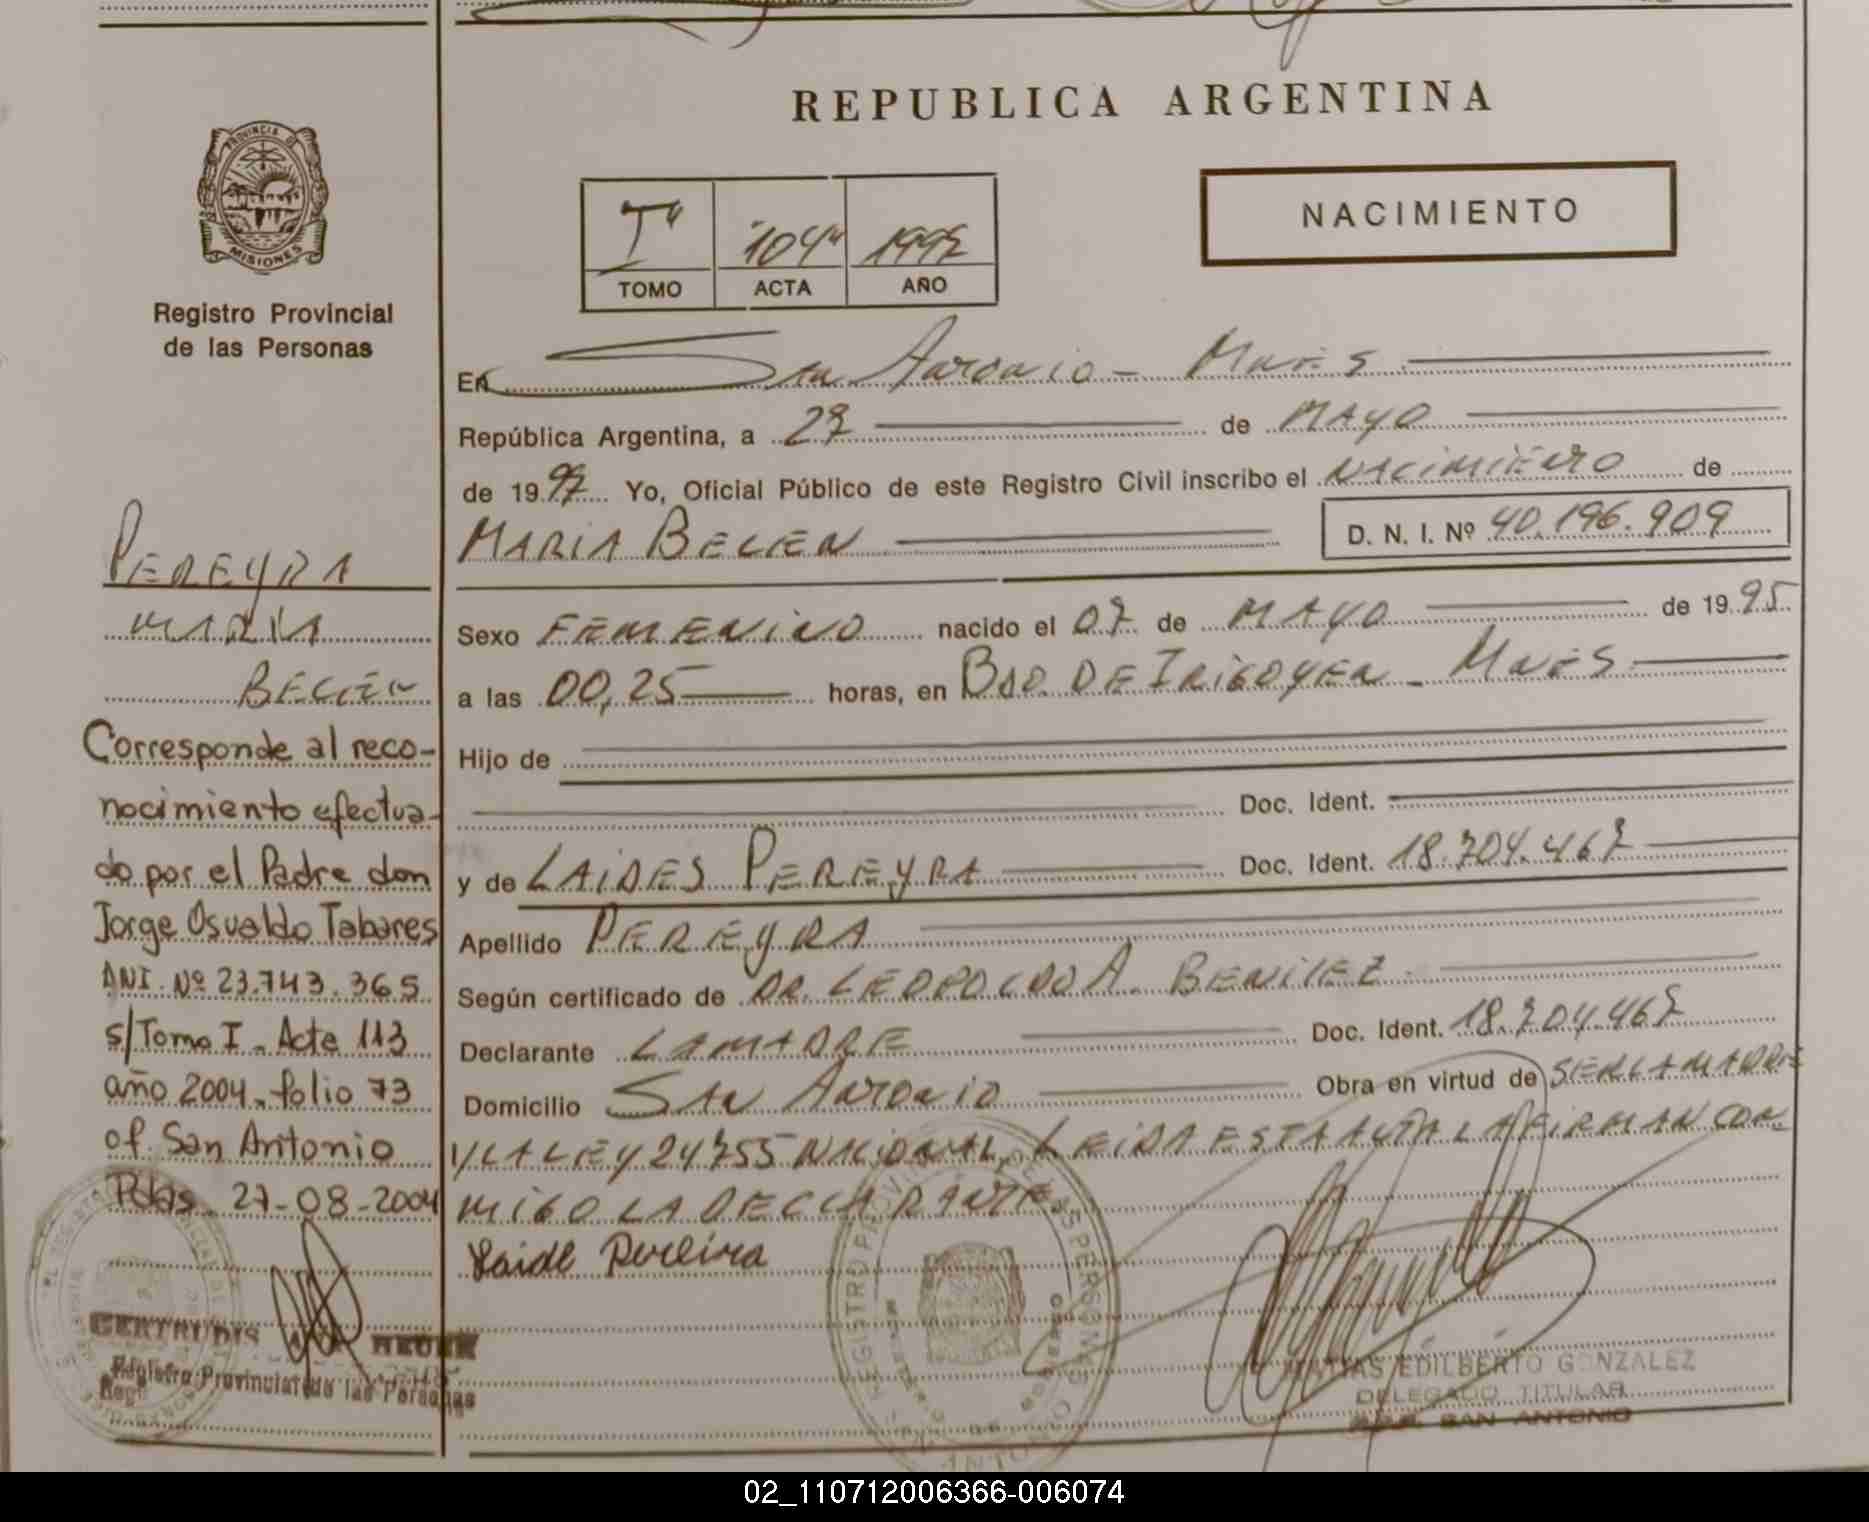 REPUBLICA ARGENTINA
PROVINCIA DE
MISIONES
Registro Provincial
de las Personas
I"
"104"
1997
TOMO
ACTA
AÑO
NACIMIENTO
En San Antonio - Mnes
República Argentina, a 27 de MAYO
de 1997 Yo, Oficial Público de este Registro Civil inscribo el NACIMIENTO de
MARIA BELEN D. N. I. Nº 40.196.909
Sexo FEMENINO nacido el 07 de MAYO de 1995
a las 00,25 horas, en BDO. DE IRIGOYEN - MNES
Hijo de
Doc. Ident.
y de LAIDES PEREYRA Doc. Ident. 18.704.467
Apellido PEREYRA
Según certificado de DR. LEOPOLDO A. BENITEZ
Declarante LA MADRE Doc. Ident. 18.704.467
Domicilio SAN ANTONIO Obra en virtud de SER LA MADRE
Y LA LEY 24755 NACIONAL, LEIDA ESTA ACTA LA FIRMAN CON-
MIGO LA DECLARANTE
Laide Pereira
PEREYRA
MARIA
BELEN
Corresponde al reco-
nocimiento efectua-
do por el Padre don
Jorge Osvaldo Tabares
DNI. Nº 23.743.365
s/Tomo I - Acta 113
año 2004 - folio 73
of. San Antonio
Pdas. 27-08-2004
GERTRUDIS
Registro Provincial de las Personas
REGISTRO PROVINCIAL DE LAS PERSONAS
EDILBERTO GONZALEZ
DELEGADO TITULAR
SAN ANTONIO
02_110712006366-006074